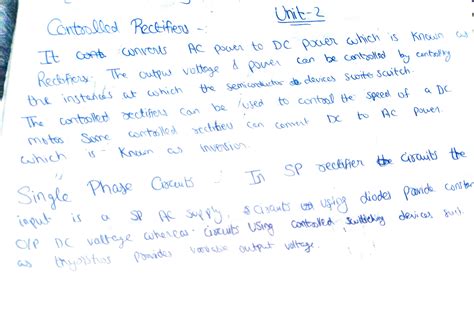 Unit-2
Controlled Rectifiers :-
It converts AC power to DC power which is known as
Rectifiers. The output voltage & power can be controlled by controlling
the instances at which the semiconductor devices switch.
The controlled rectifiers can be used to control the speed of a DC
motor. Some controlled rectifiers can convert DC to AC power.
which is known as inversion.
Single Phase Circuits :- In SP rectifier circuits the
input is a SP AC supply. circuits using diodes provide constant
O/P DC voltage whereas circuits using controlled switching devices such
as thyristors provides variable output voltage.